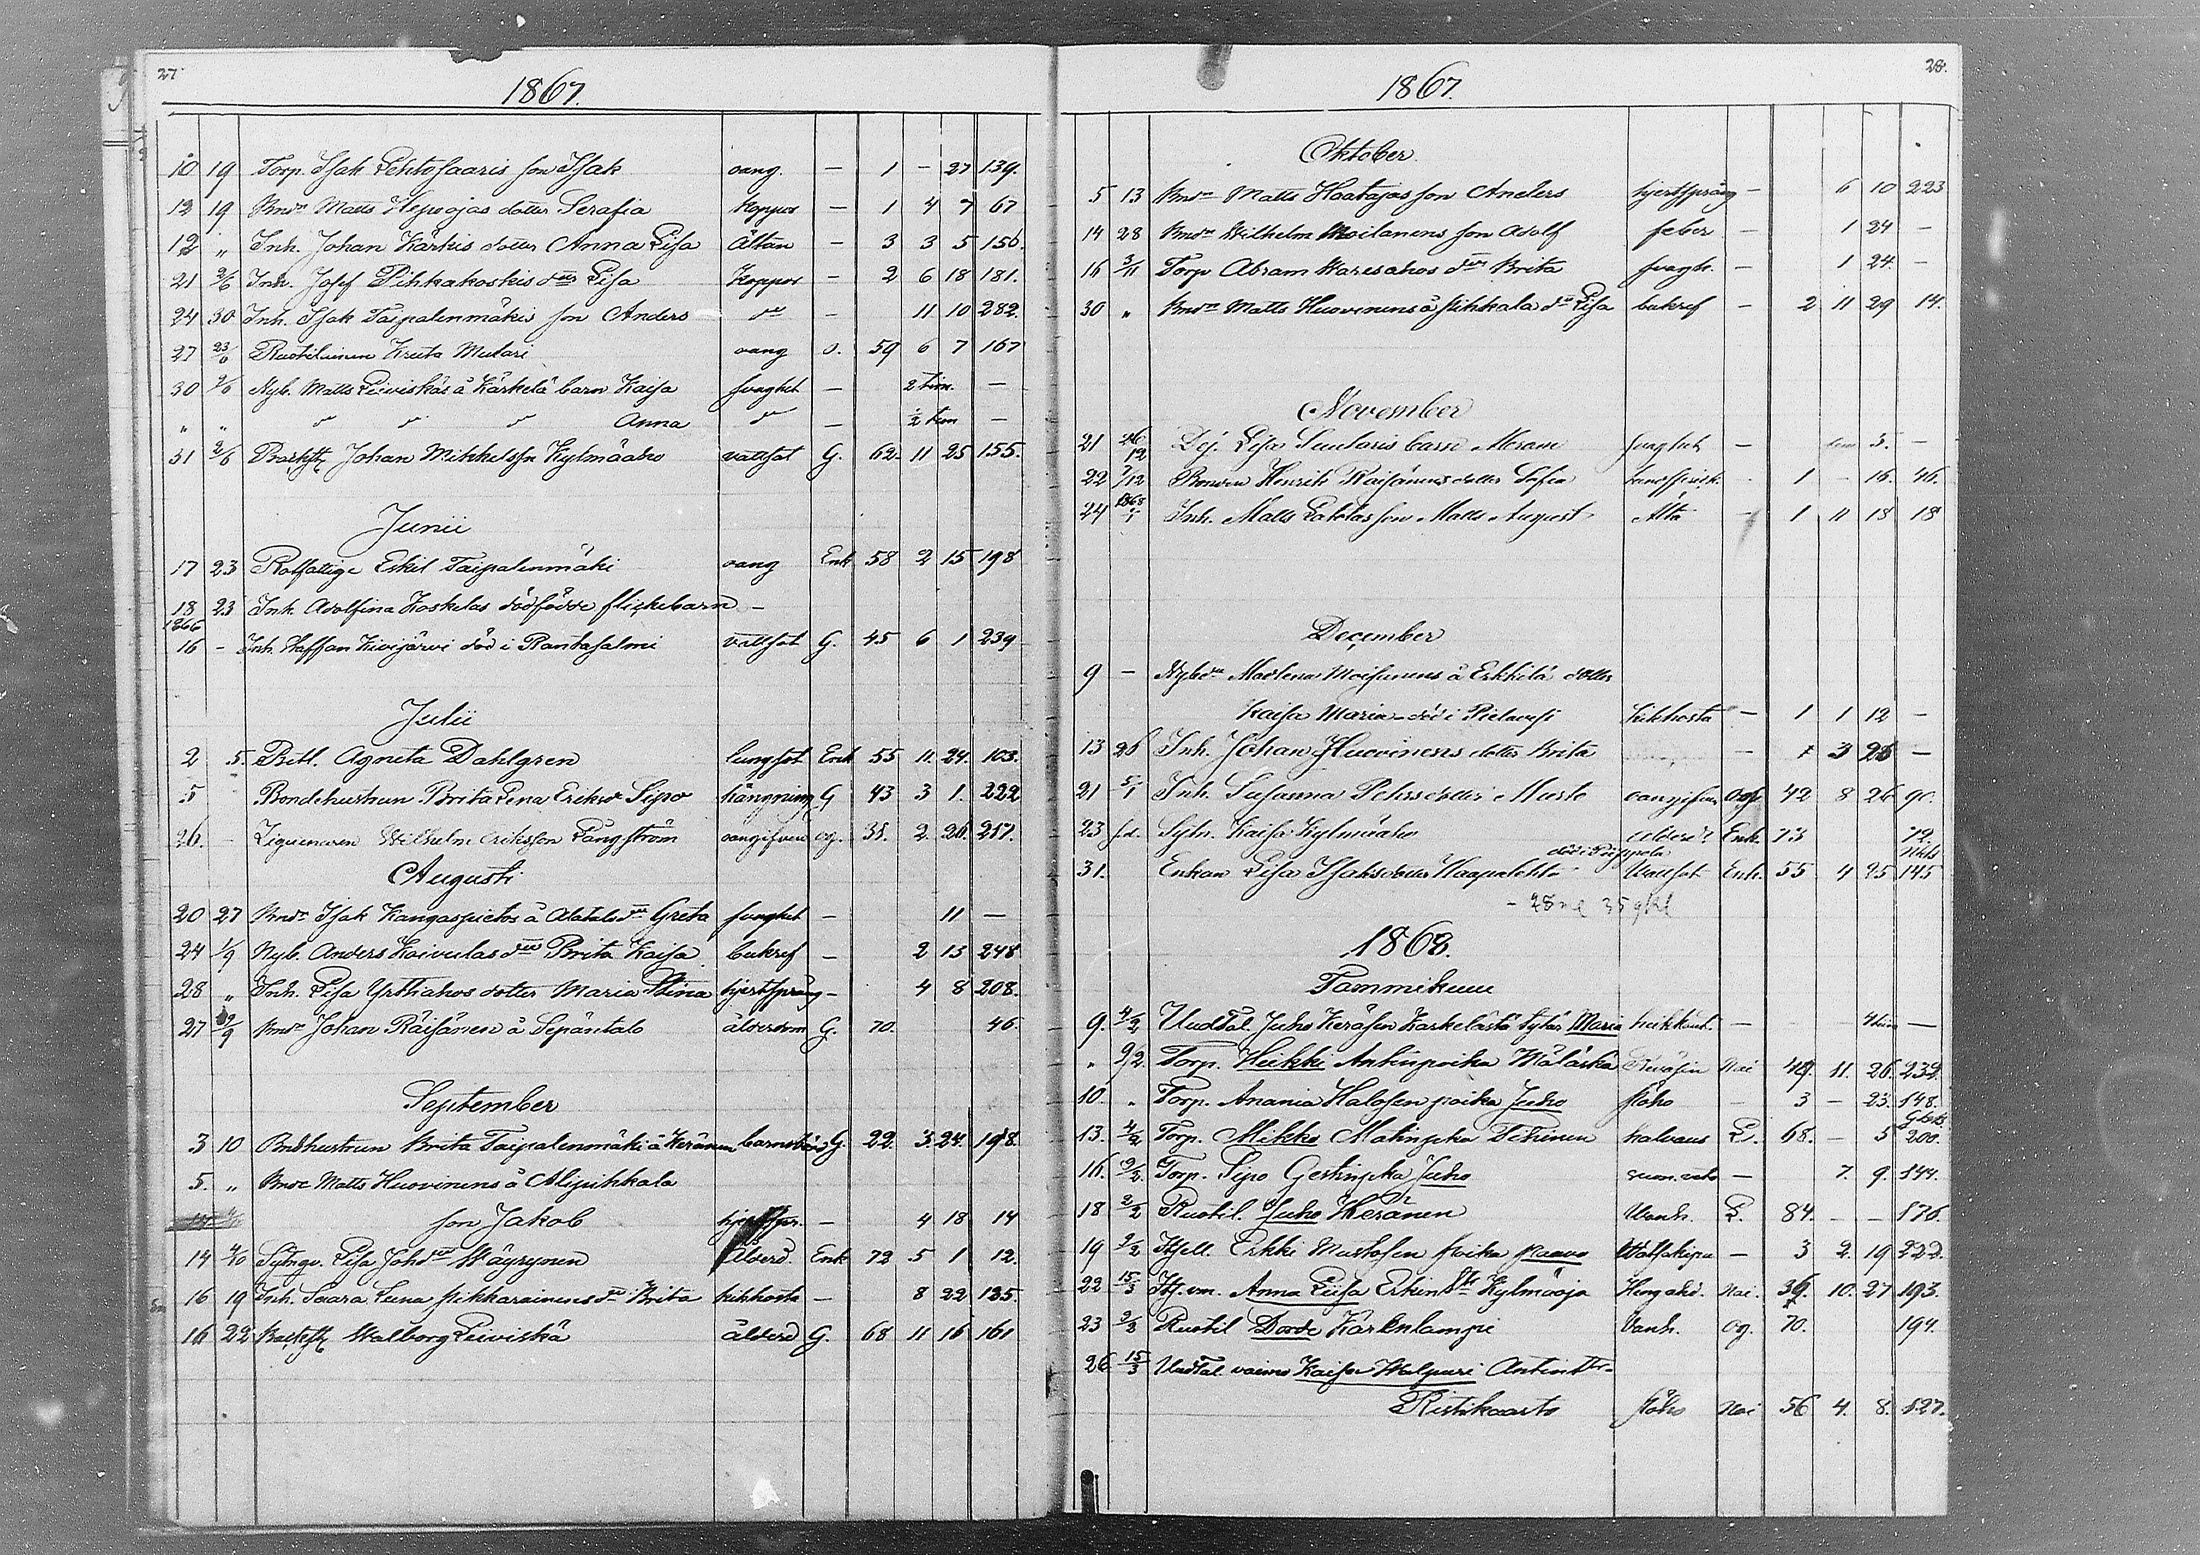 27
1867.
10 19 Torp. Isak Lehtosaaris son Isak oang. — 1 - 27 139.
12 19 Bnd Matts Hepoojas dotter Serafia Koppor — 1 4 7 67
12 " Inh. Johan Kärkis dotter Anna Lisa Ältan — 3 3 5 156.
21 2/6 Inh. Josef Pihkakoskis dtr Lisa Koppor — 2 6 18 181.
24 30 Inh. Isak Taipalenmäkis son Anders do — 11 10 282.
27 23/6 Ruotilainen Kreta Mutari oang o. 59 6 7 167
30 2/6 Nyb. Matts Leiviskäs å Kärkelä barn Kaisa svaghet — 2 tim. —
" " " " " Anna do — 1/2 tim —
31 2/6 Backst Johan Mikkelson Kylmäaho vattsot G. 62 11 25 155.
Junii
17 23 Rotfattige Eskil Taipalenmäki oang Enk 58 2 15 198
18 23 Inh. Adolfina Koskelas dödfödde flickebarn —
1866
16 - Inh. Staffan Kivijärvi död i Rantasalmi vattsot G. 45 6 1 239
Julii
2 5. Bitl. Agneta Dahlgren lungsot Enk 55 11. 24. 103.
5 Bondehustrun Brita Lena Eriksd Sipo hängning G 43 3 1. 222
26. Zigenaren Wilhelm Eriksson Långström oangifven og. 31. 2. 26. 217.
Augusti
20 27 Bnd Isak Kangaspietos å Alatalo dtr Greta svaghet — 11 —
24 1/9 Nyb. Anders Koivulas dtr Brita Kaisa bukref — 2 13 248
28 " Inh. Lisa Yrttiahos dotter Maria Stina hjertsprång — 4 8 208.
27 29/9 Bnd Johan Räisänen å Sepäntalo ålderdom G. 70. 46.
September
3 10 Bndhustrun Brita Taipalenmäki å Keränen barnsbörd G. 22. 3. 24. 198.
5. " Bnde Matts Huovinens å Alipihkala
son Jakob hjertspr. — 4 18 14
14 4/10 Sytngv. Lisa Johdtr Wäyrynen Ålderd. Enk 72 5 1 12.
16 19 Inh. Saara Leena Pikkarainens dr Brita kikhosta — 8 22 135.
16 22 Backst Walborg Leiviskä ålderd G. 68 11 16 161
28.
1867.
Oktober
5 13 Bnd Matts Haatajas son Anders hjertsprång — 6 10 223
14 28 Bnd Wilhelm Moilanens son Adolf feber — 1 24 —
16 3/11 Torp Abram Karesahos dtr Brita svagh. — 1 24. —
30 " Bnd Matts Huovinens å Pihkala dr Lisa bukref — 2 11 29 14.
November
21 26/12 Lisa barn svaghet — 5. —
22 7/12 Bonden Henrik Räisänens dotter Sofia 1 - 16. 46.
24 1868 Inh. Matts son Matts August Ältä 1 11 18 18
December
9 — Nybdr Madlena Moisanens å Erkkilä dotter
Kaisa Maria död i Pielavesi kikhosta — 1 1 12 —
13 26 Inh. Johan Huovinens dotter Brita — 3 26 —
21 5/1 Inh. Susanna Pehrsdotter Musto oangifven og. 42 8 26 90.
23 s.d. Sytn. Kaisa Kylmäaho ålderd Enk. 73 72.
död i Piippola
31. Enkan Lisa Isaksdotter Haapalehto Wattsot Enk. 55 4 25 145
- 28 35
1868.
Tammikuu
9. 4/2 Uudtal. Juho Keräsen Karkelästä tytär Maria heikkout. — 4 tiim —
" 9/2 Torp. Heikki Antinpoika Määtäskä Nai 49. 11. 26. 239.
10. " Torp. Anania Halosen poika Juho flåho — 3 — 23. 148.
13. 4/2 Torp. Mikko Matinpka Tihinen halvaus L. 68. — 5 200.
16. 9/2 Torp. Sipo Gertinpka Juho — 7. 9. 144.
18 2/2 Ruotil. Juho Keränen Wanh. L. 84. — — 176.
19 2/2 Itsell. Erkki Mustosen poika Paavo Watsakipu — 3 2. 19 222.
22 15/3 Its. vm. Anna Liisa Erkintr Kylmäoja Hengahd. Nai. 36. 10. 27 193.
23 2/2 Ruotil Dorde Karknlampi Vanh. og. 70. 194.
26 15/3 Uudtal vaimo Kaisa Walpuri Antintr
Ristikaarto flåho Nai 56 4. 8. 127.